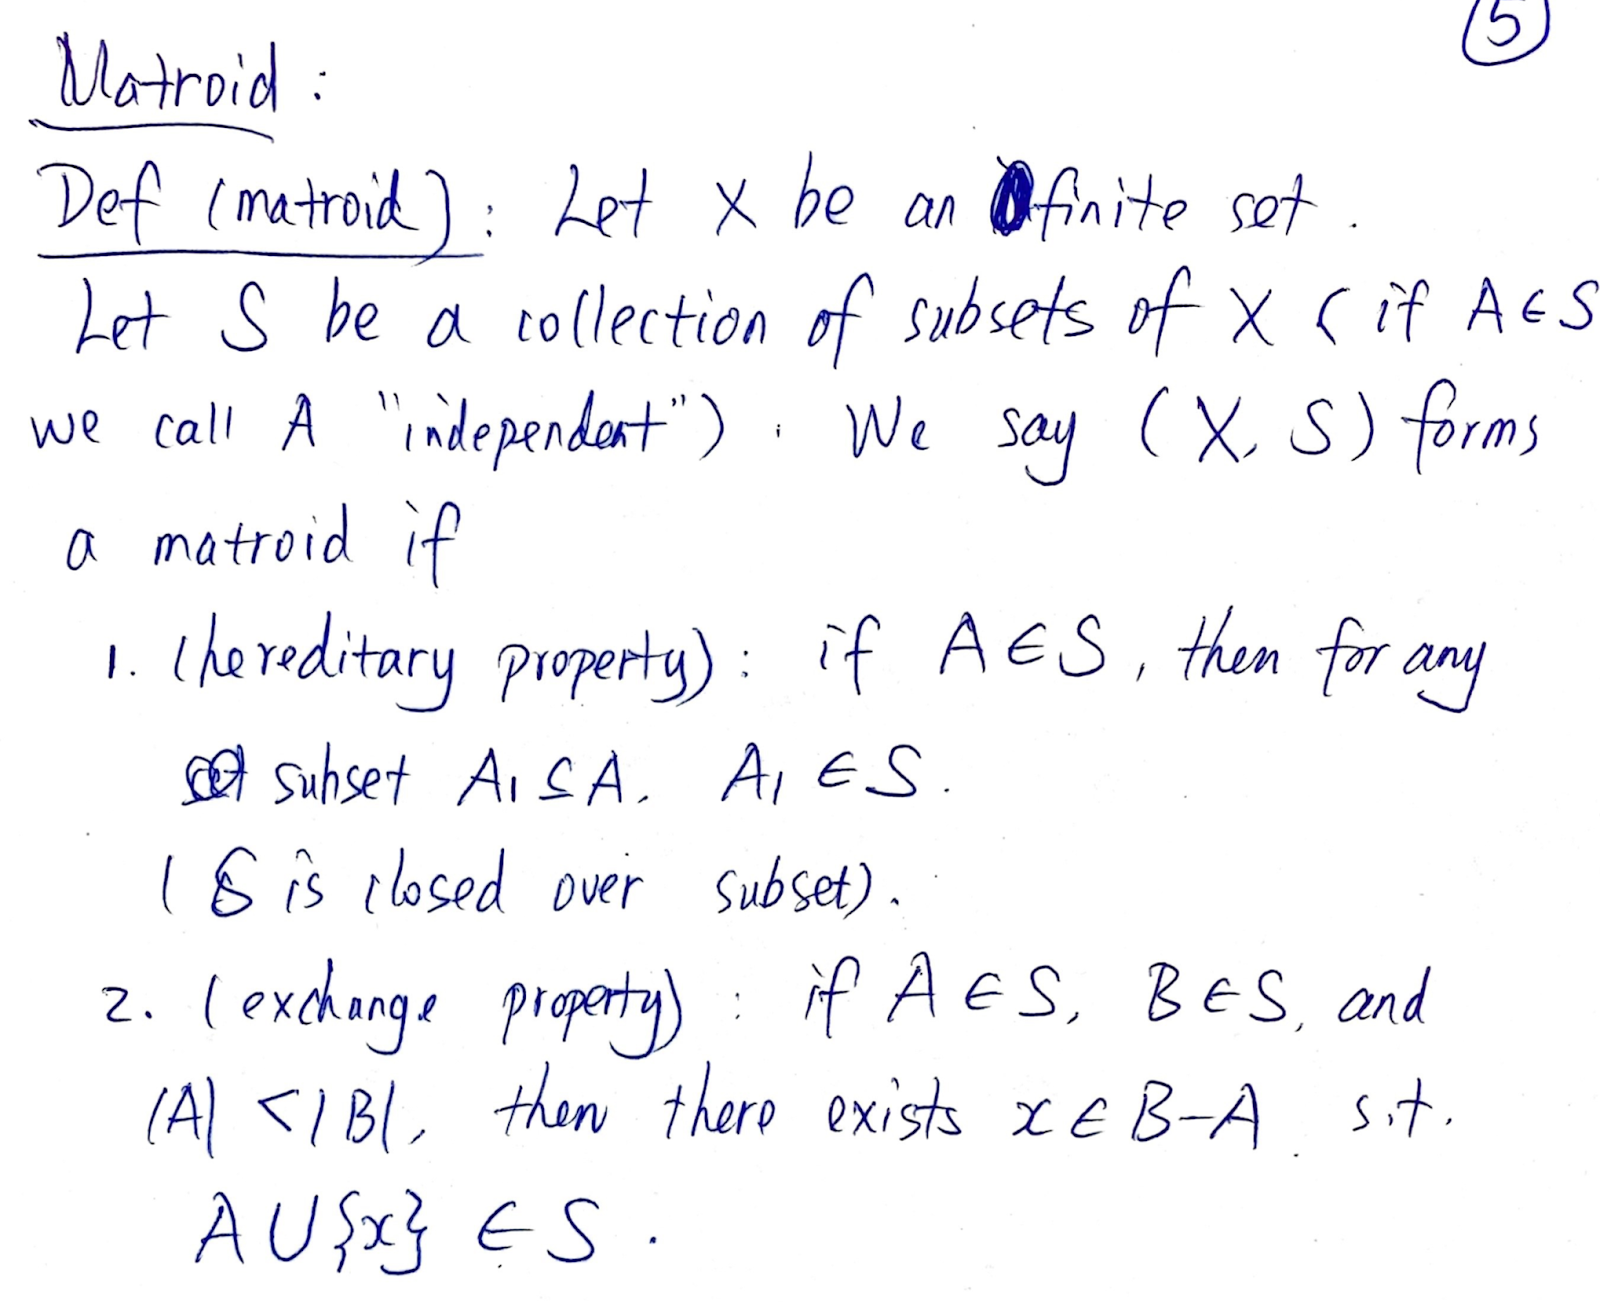 5
Matroid :
Def (matroid) : Let X be an finite set .
Let S be a collection of subsets of X ( if A ∈ S
we call A "independent") . We say (X, S) forms
a matroid if
1. (hereditary property) : if A ∈ S , then for any
subset A₁ ⊆ A, A₁ ∈ S .
( S is closed over subset) .
2. (exchange property) : if A ∈ S, B ∈ S, and
|A| < |B|, then there exists x ∈ B-A s.t.
A ∪ {x} ∈ S .